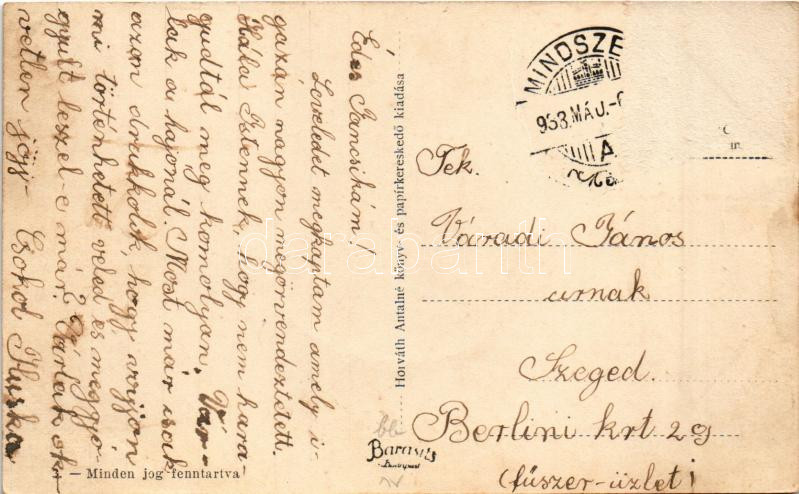 Édes Jancsikám!
Leveledet megkaptam amely i-
gazán nagyon megörvendeztetett.
Hála Istennek, hogy nem hara
gudtál meg komolyan. Vár-
lak a hajónál. Most már csak
azon drukkolok, hogy vajjon
mi történhetett veled és meggyó-
gyult leszel-e már? Várlak ok-
vetlen jőjj. Csókol
Minden jog fenntartva
Horváth Antalné könyv- és papírkereskedő kiadása
Barasits
Budapest
MINDSZE
938.MÁJ.-6
A
Tek.
Váradi János
urnak
Szeged.
Berlini krt 29
(fűszer-üzlet)
darabanth